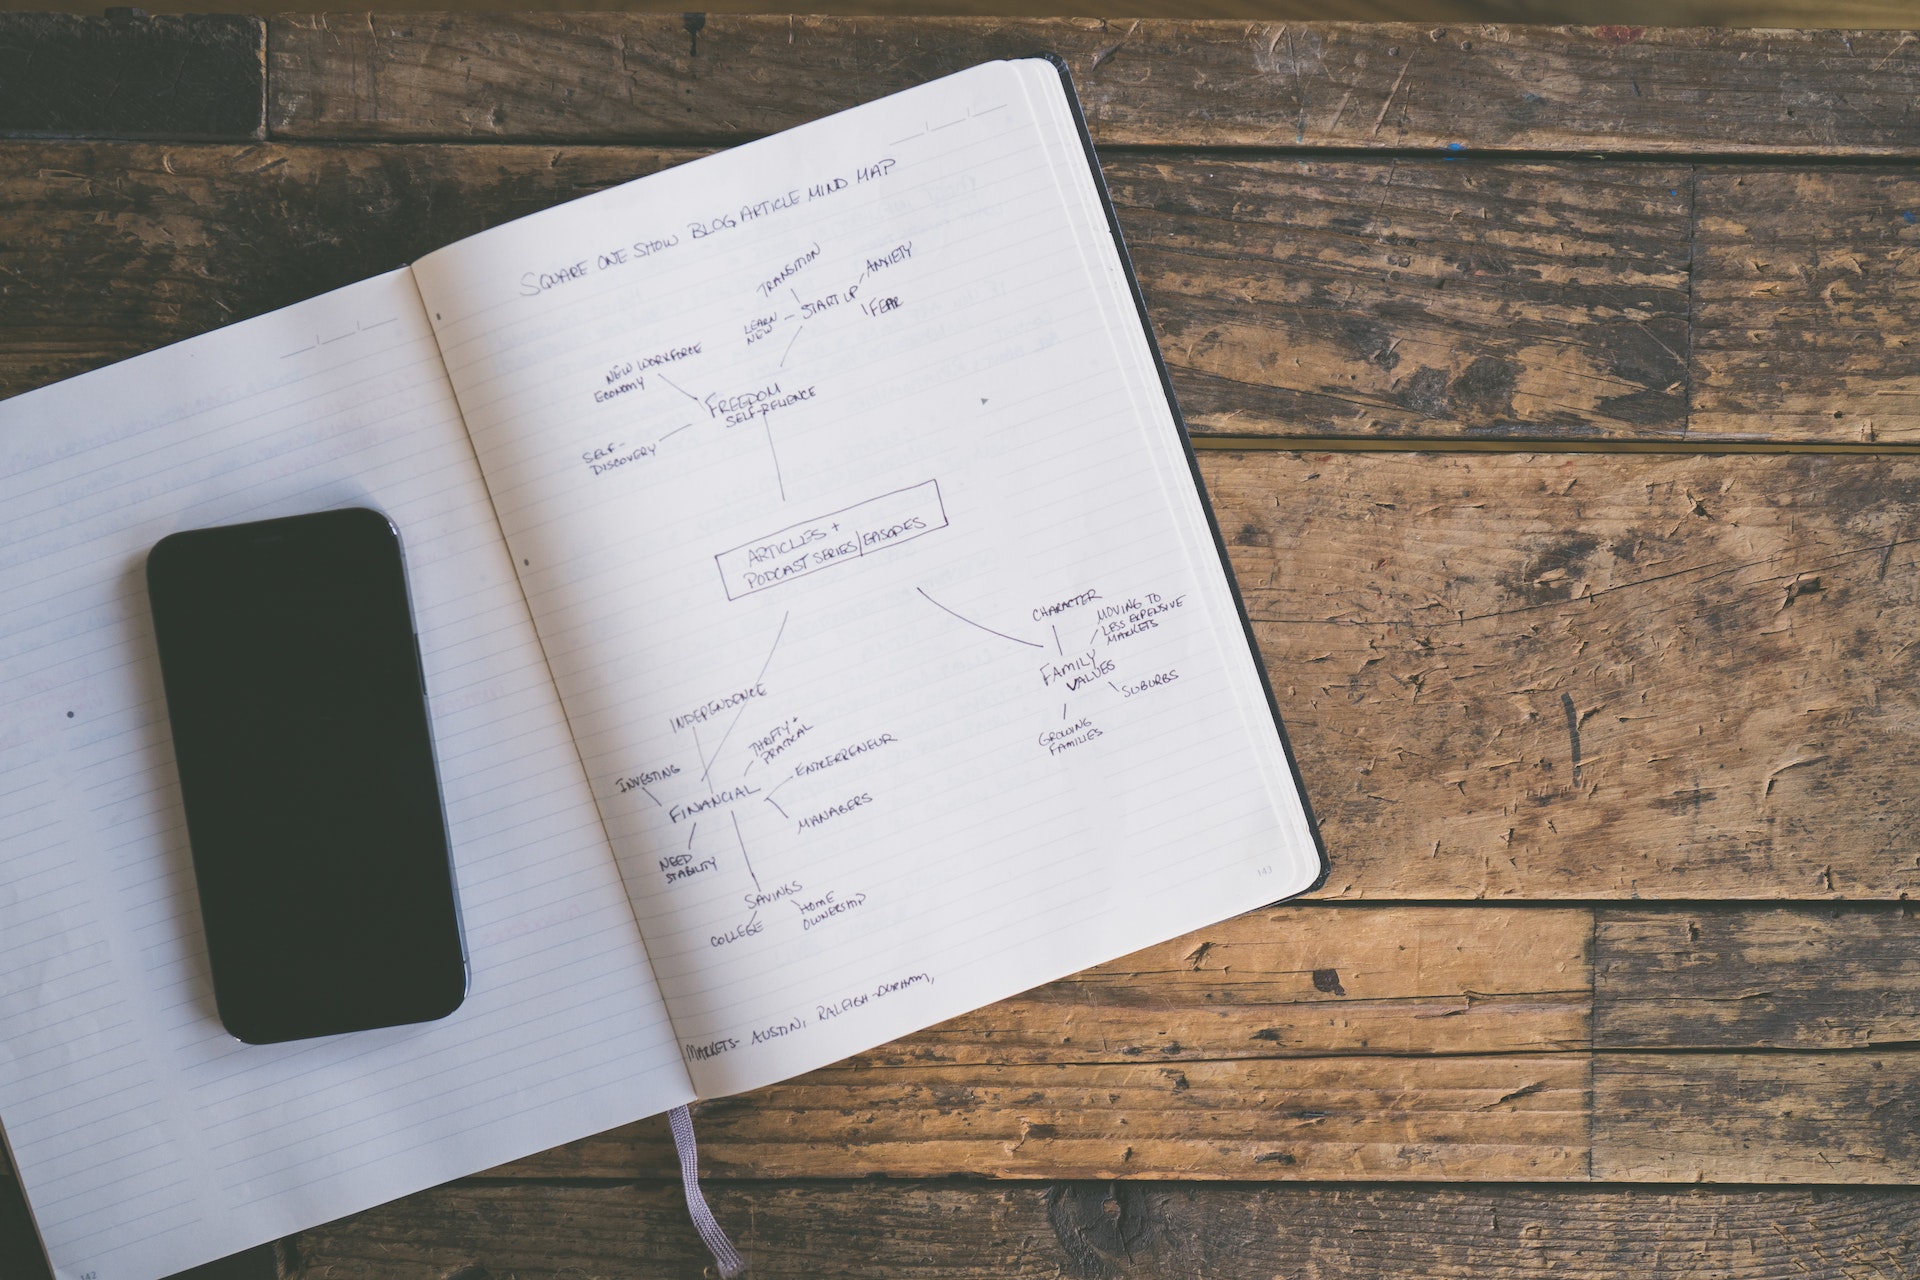 SQUARE ONE SHOW BLOG ARTICLE MIND MAP
TRANSITION
ANXIETY
START UP
FEAR
LEARN
NEW
NEW WORKFORCE
ECONOMY
FREEDOM
SELF-RELIENCE
SELF-
DISCOVERY
ARTICLES +
PODCAST SERIES/EPISODES
CHARACTER
MOVING TO
LESS EXPENSIVE
MARKETS
FAMILY
VALUES
SUBURBS
GROWING
FAMILIES
INDEPENDENCE
THRIFTY +
PRATICAL
ENTRERRENEUR
INVESTING
FINANCIAL
MANAGERS
NEED
STABILITY
SAVINGS
HOME
OWNERSHIP
COLLEGE
MARKETS- AUSTIN, RALEIGH-DURHAM,
143
142